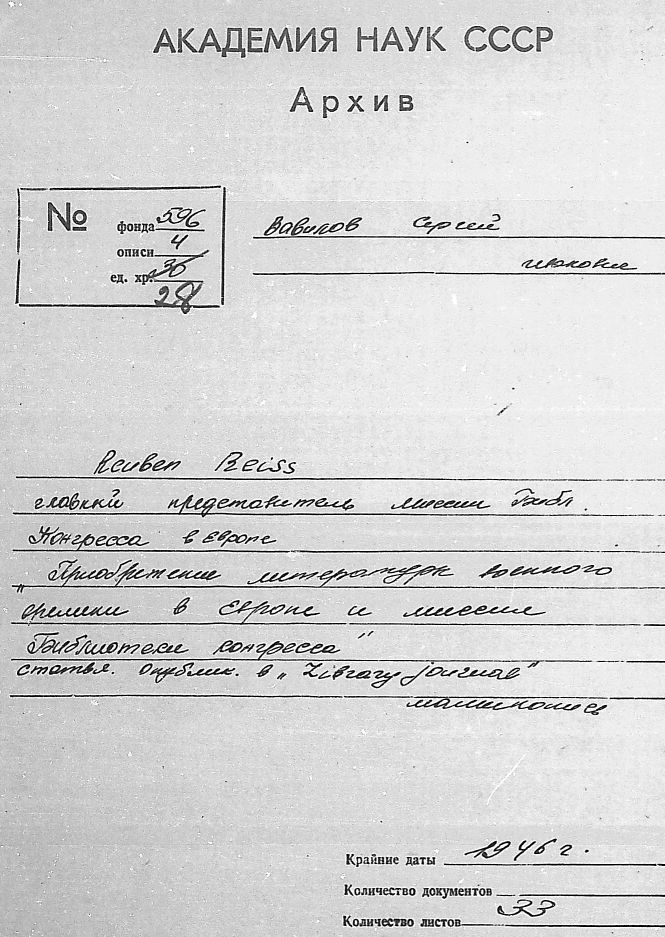 АКАДЕМИЯ НАУК СССР
Архив
№
фонда 596
описи 4
ед. хр. 36
28
Вавилов Сергей
Иванович
Reuben Peiss
главный представитель миссии Библ.
Конгресса в Европе
"Приобретение литературы военного
времени в Европе и миссия
Библиотеки конгресса"
статья. Опублик. в "Library journal"
машинопись
Крайние даты 1946 г.
Количество документов
Количество листов 33